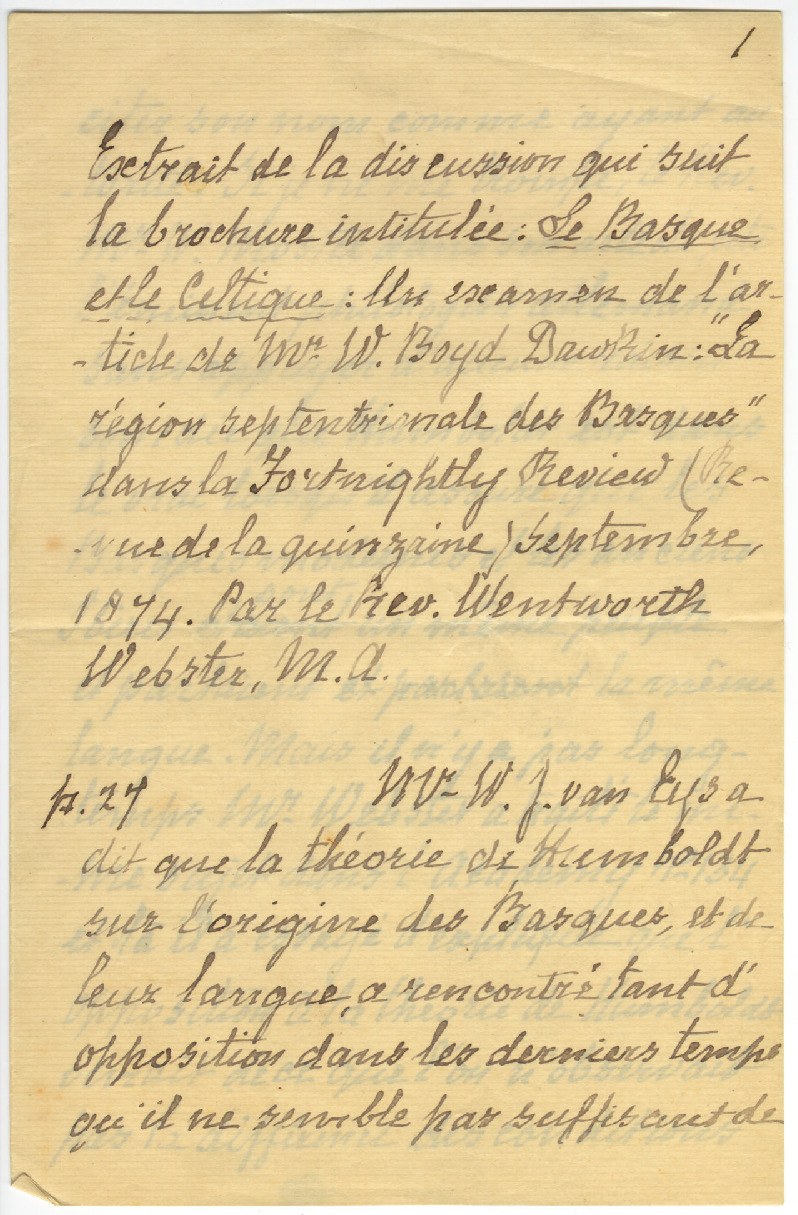 1
Extrait de la discussion qui suit
la brochure intitulée : Le Basque
et le Celtique : Un examen de l'ar-
-ticle de Mr. W. Boyd Dawkin : "La
région septentrionale des Basques"
dans la Fortnightly Review (Re-
-vue de la quinzaine) septembre,
1874. Par le Rev. Wentworth
Webster, M. A.
p. 27 Mr. W. J. van Eys a
dit que la théorie de Humboldt
sur l'origine des Basques, et de
leur langue, a rencontré tant d'
opposition dans les derniers temps
qu'il ne semble pas suffisant de